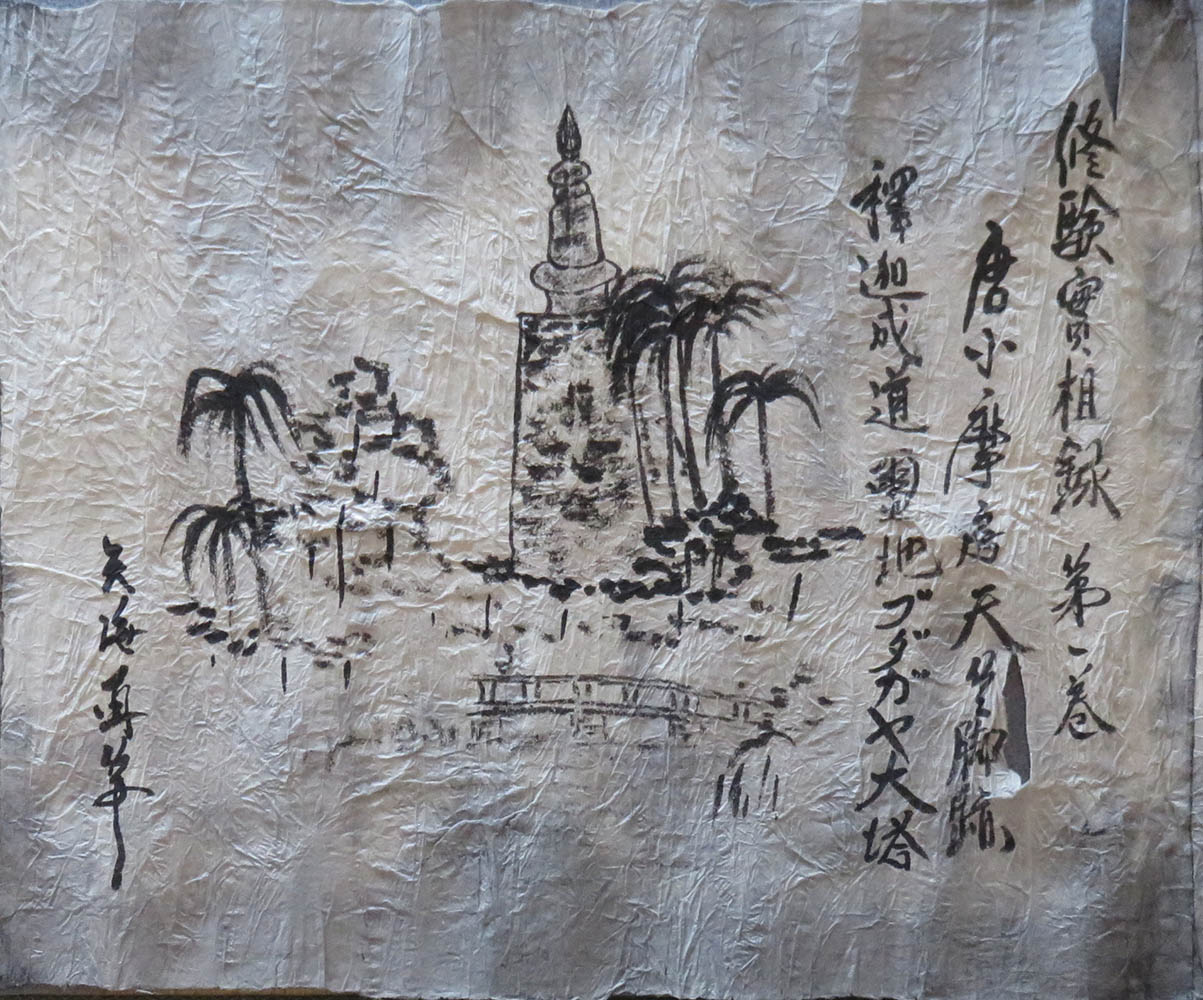 修験實相録 第一巻
唐小摩房天 脚跡
釋迦成道聖地ブダガヤ大塔
天海画筆